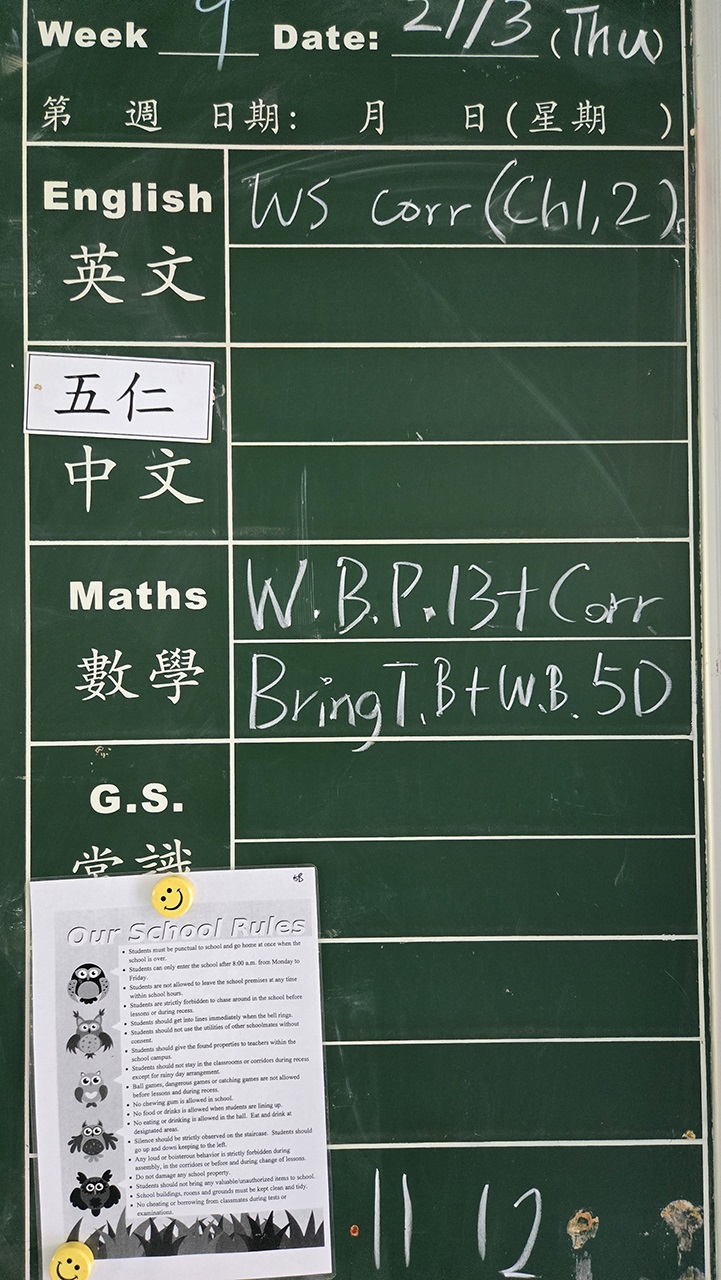 Week 9 Date: 21/3 (Thu)
第 週 日期: 月 日(星期 )
English WS corr (Ch1,2).
英文
五仁
中文
Maths W.B.P.13+Corr
數學 Bring T.B+W.B. 5D
G.S.
常識
Our School Rules
• Students must be punctual to school and go home at once when the
school is over.
• Students can only enter the school after 8:00 a.m. from Monday to
Friday.
• Students are not allowed to leave the school premises at any time
within school hours.
• Students are strictly forbidden to chase around in the school before
lessons or during recess.
• Students should get into lines immediately when the bell rings.
• Students should not use the utilities of other schoolmates without
consent.
• Students should give the found properties to teachers within the
school campus.
• Students should not stay in the classrooms or corridors during recess
except for rainy day arrangement.
• Ball games, dangerous games or catching games are not allowed
before lessons and during recess.
• No chewing gum is allowed in school.
• No food or drinks is allowed when students are lining up.
• No eating or drinking is allowed in the hall. Eat and drink at
designated areas.
• Silence should be strictly observed on the staircase. Students should
go up and down keeping to the left.
• Any loud or boisterous behavior is strictly forbidden during
assembly, in the corridors or before and during change of lessons.
• Do not damage any school property.
• Students should not bring any valuable/unauthorized items to school.
• School buildings, rooms and grounds must be kept clean and tidy.
• No cheating or borrowing from classmates during tests or
examinations.
11 12